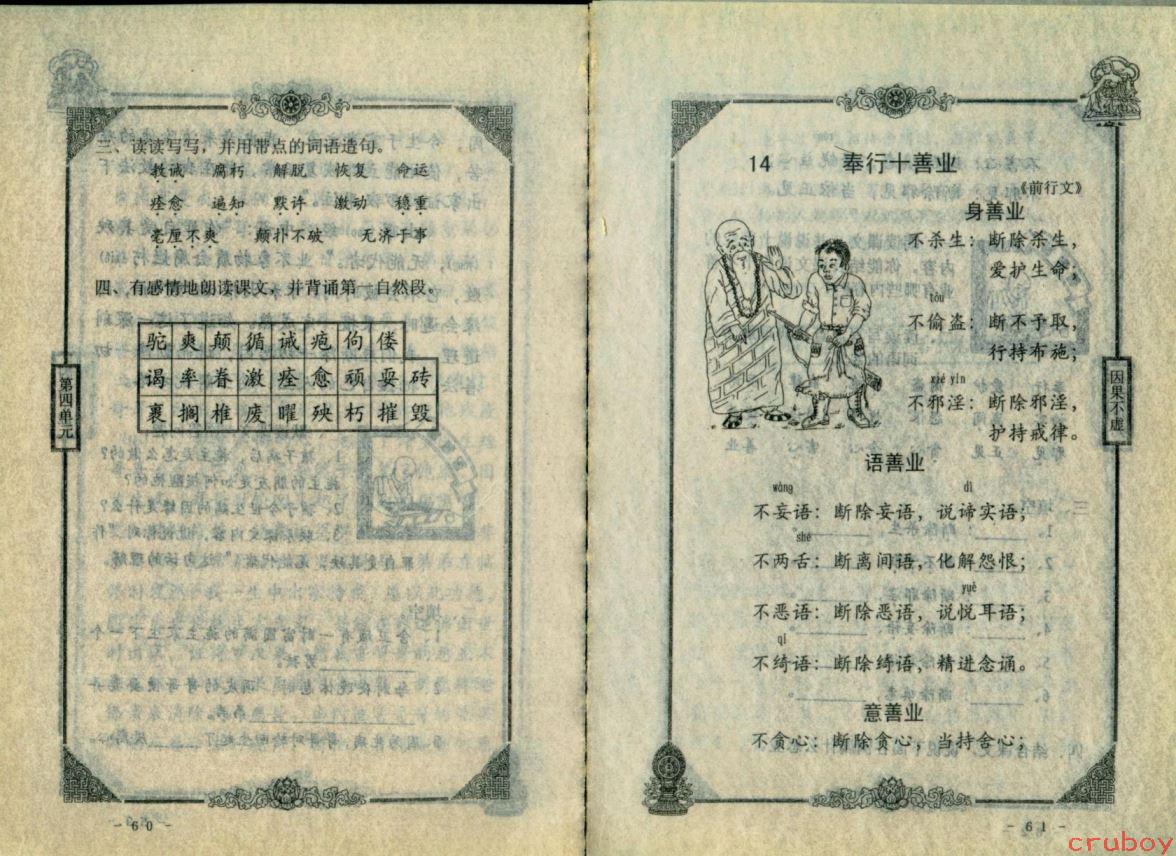 三、读读写写，并用带点的词语造句。
教诫 腐朽 解脱 恢复 命运
痊愈 遍知 默许 激动 稳重
毫厘不爽 颠扑不破 无济于事
四、有感情地朗读课文，并背诵第一自然段。
驼 爽 颠 循 诫 疤 佝 偻
谒 率 眷 激 痊 愈 顽 耍 砖
裹 搁 椎 废 曜 殃 朽 摧 毁
第四单元
- 60 -
14 奉行十善业
《前行文》
身善业
不杀生：断除杀生，
爱护生命；
tōu
不偷盗：断不予取，
行持布施；
xié yín
不邪淫：断除邪淫，
护持戒律。
语善业
wàng dì
不妄语：断除妄语，说谛实语；
shé
不两舌：断离间语，化解怨恨；
yuè
不恶语：断除恶语，说悦耳语；
qǐ
不绮语：断除绮语，精进念诵。
意善业
不贪心：断除贪心，当持舍心；
因果不虚
- 61 -
cruboy